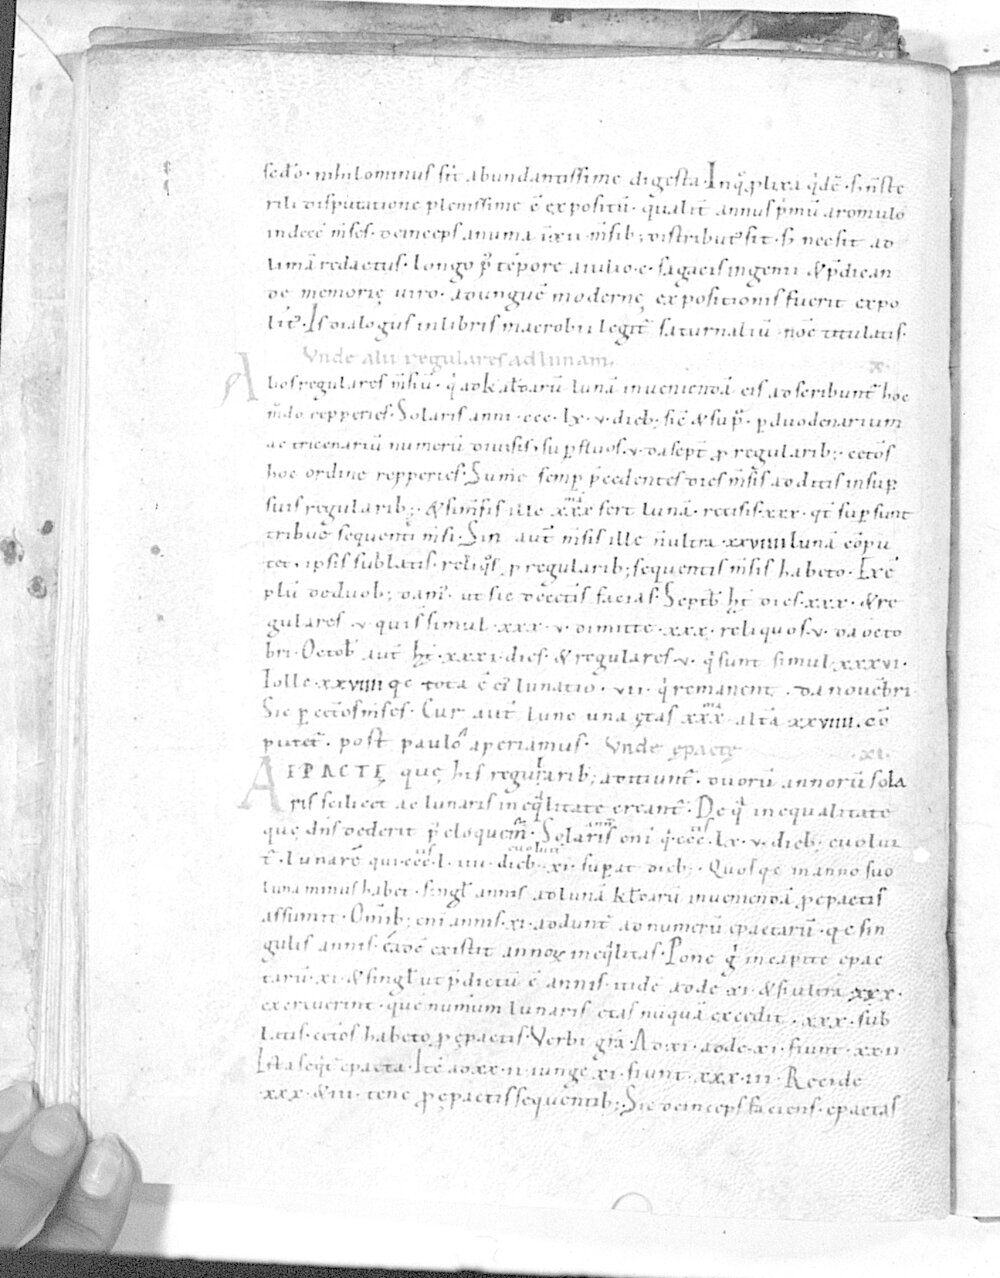 sedo · nihilominus sit abundantissime digesta · In q̄ plixa q̄de · s; ń ste
rili disputatione plenissime ē expositū · qualit̄ annus p̄mū a romulo
in decē m̄ses · deinceps a numa in xii · m̄sib; distribut sit · s; nec sit ad
limā redactus · longo p̄ tēpore a iulio · c · sagacis ingenii & p̄dican
de memorię viro · ad unguē modernę expositionis fuerit expo
lit · Is dialogus in libris macrobii legit̄ saturnaliū noīe titulatis ·
Vnde alii regulares ad lunam · x ·
Alios regulares m̄siū · q̄ ad kal̄darū lunā inveniendā eis adscribunt̄ hoc
m̄do repperies · Solaris anni · ccc · lx · v · dieb; sic & sup̄ · p duodenarium
ac tricenariū numerū divisis · sup̄fluos · v · da sept̄ p regularib; cet̄os
hoc ordine repperies · Sume semp p̄cedentes dies m̄sis additis insup
suis regularib; · & si m̄sis ille xxx fert lunā · recisis · xxx · q̄ supsunt
tribue sequenti m̄si · Sin aut̄ m̄sis ille ń ultra · xxviiii lunā cōpu
tet · ipsis sublatis · reliq̄s p regularib; sequentis m̄sis habeto · Exē
plū de duob; dam̄ · ut sic de cet̄is facias · Septēb h̄t dies · xxx · & re
gulares · v · qui s̄ simul · xxx · v · dimitte · xxx · reliquos · v · da octo
bri · Octob̄ aut̄ h̄t · xxxi · dies · & regulares · v · q̄ sunt simul · xxxvi ·
Tolle · xxviiii · qe tota ē ei lunatio · vii · q̄ remanent · da novēbri
Sic p cet̄os m̄ses · Cur aut̄ lunę una ętas xxx · alt̄a xxviiii · cō
putet̄ · post paulo aperiamus · Vnde ępactę · xi ·
AEPACTĘ quę his regularib; adiciunt̄ · duorū annorū sola
ris scilicet ac lunaris ineq̄litate creant̄ · De q̄ inequalitate
quę dn̄s dederit p̄ eloquem̄ · Solaris eni q̄ ccc · lx · v · dieb; evolui
t̄ · lunarē qui ccc · l · iiii · dieb · xi · supat dieb; · Quos qe in anno suo
luna minus habet · singl̄ annis ad lunā kl̄darū inveniendā p epactis
assumit · Omīb; eni annis · xi · addunt̄ ad numerū epactarū · qe sin
gulis annis · eadē existit annoꝝ ineq̄litas · Pone ḡ in capite epac
tarū · xi · & singl̄ ut p̄dictū ē annis · itidē adde · xi · & si ultra xxx ·
excreverint · que numūm lunaris ętas nūquā excedit · xxx · sub
latis · cet̄os habeto p ępactis · Verbi grā · Ad xi · adde · xi · fiunt · xx ii
Ista seq̄t̄ epacta · Itē ad xx ii iunge xi · fiunt · xxx · iii · Recide
xxx · & iii · tene p ępactis sequentib; Sic deinceps faciens · epactas